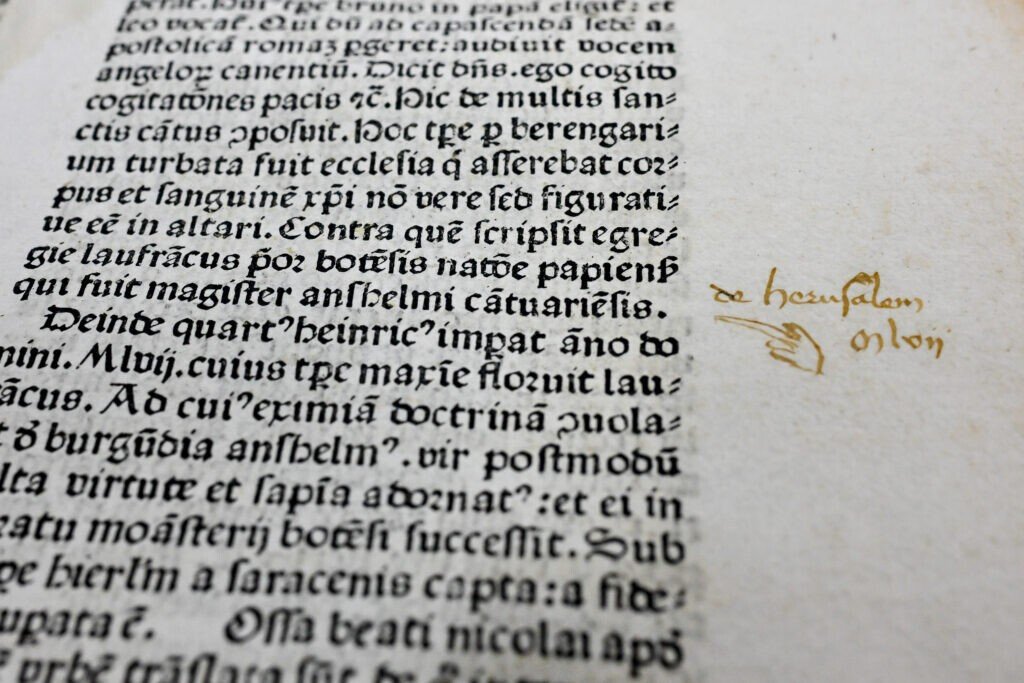 perat. Hui' tpe bruno in papā eligit̄: et
leo vocat̄. Qui dū ad capascendā sedē a⸗
postolicā romaʒ ꝑgeret: audiuit vocem
angeloꝝ canentiū. Dicit dn̄s. ego cogito
cogitatōnes pacis ⁊c̄. Hic de multis san⸗
ctis cātus ꝓposuit. Hoc tꝑe ꝑ berengari⸗
um turbata fuit ecclesia q́ asserebat cor⸗
pus et sanguinē xp̄i nō vere sed figurati⸗
ue eē in altari. Contra quē scripsit egre⸗
gie laufrācus p̄or botēsis natōe papienꝭ
qui fuit magister anshelmi cātuariēsis.
Deinde quartꝰ heinricꝰ imꝑat āno do
mini. Mlvij. cuius tꝑe maxīe floruit lau⸗
frācus. Ad cuiꝰ eximiā doctrinā ↄuola⸗
t d̄ burgūdia anshelmꝰ. vir postmodū
lta virtute et sapīa adornatꝰ: et ei in
ratu moāsterij botēsi successit. Sub
ꝑe hierl̄m a saracenis capta: a fide⸗
uꝑata ē. Ossa beati nicolai apd̄
vrbē trāslata sūt de
de herusalem
Mlvij